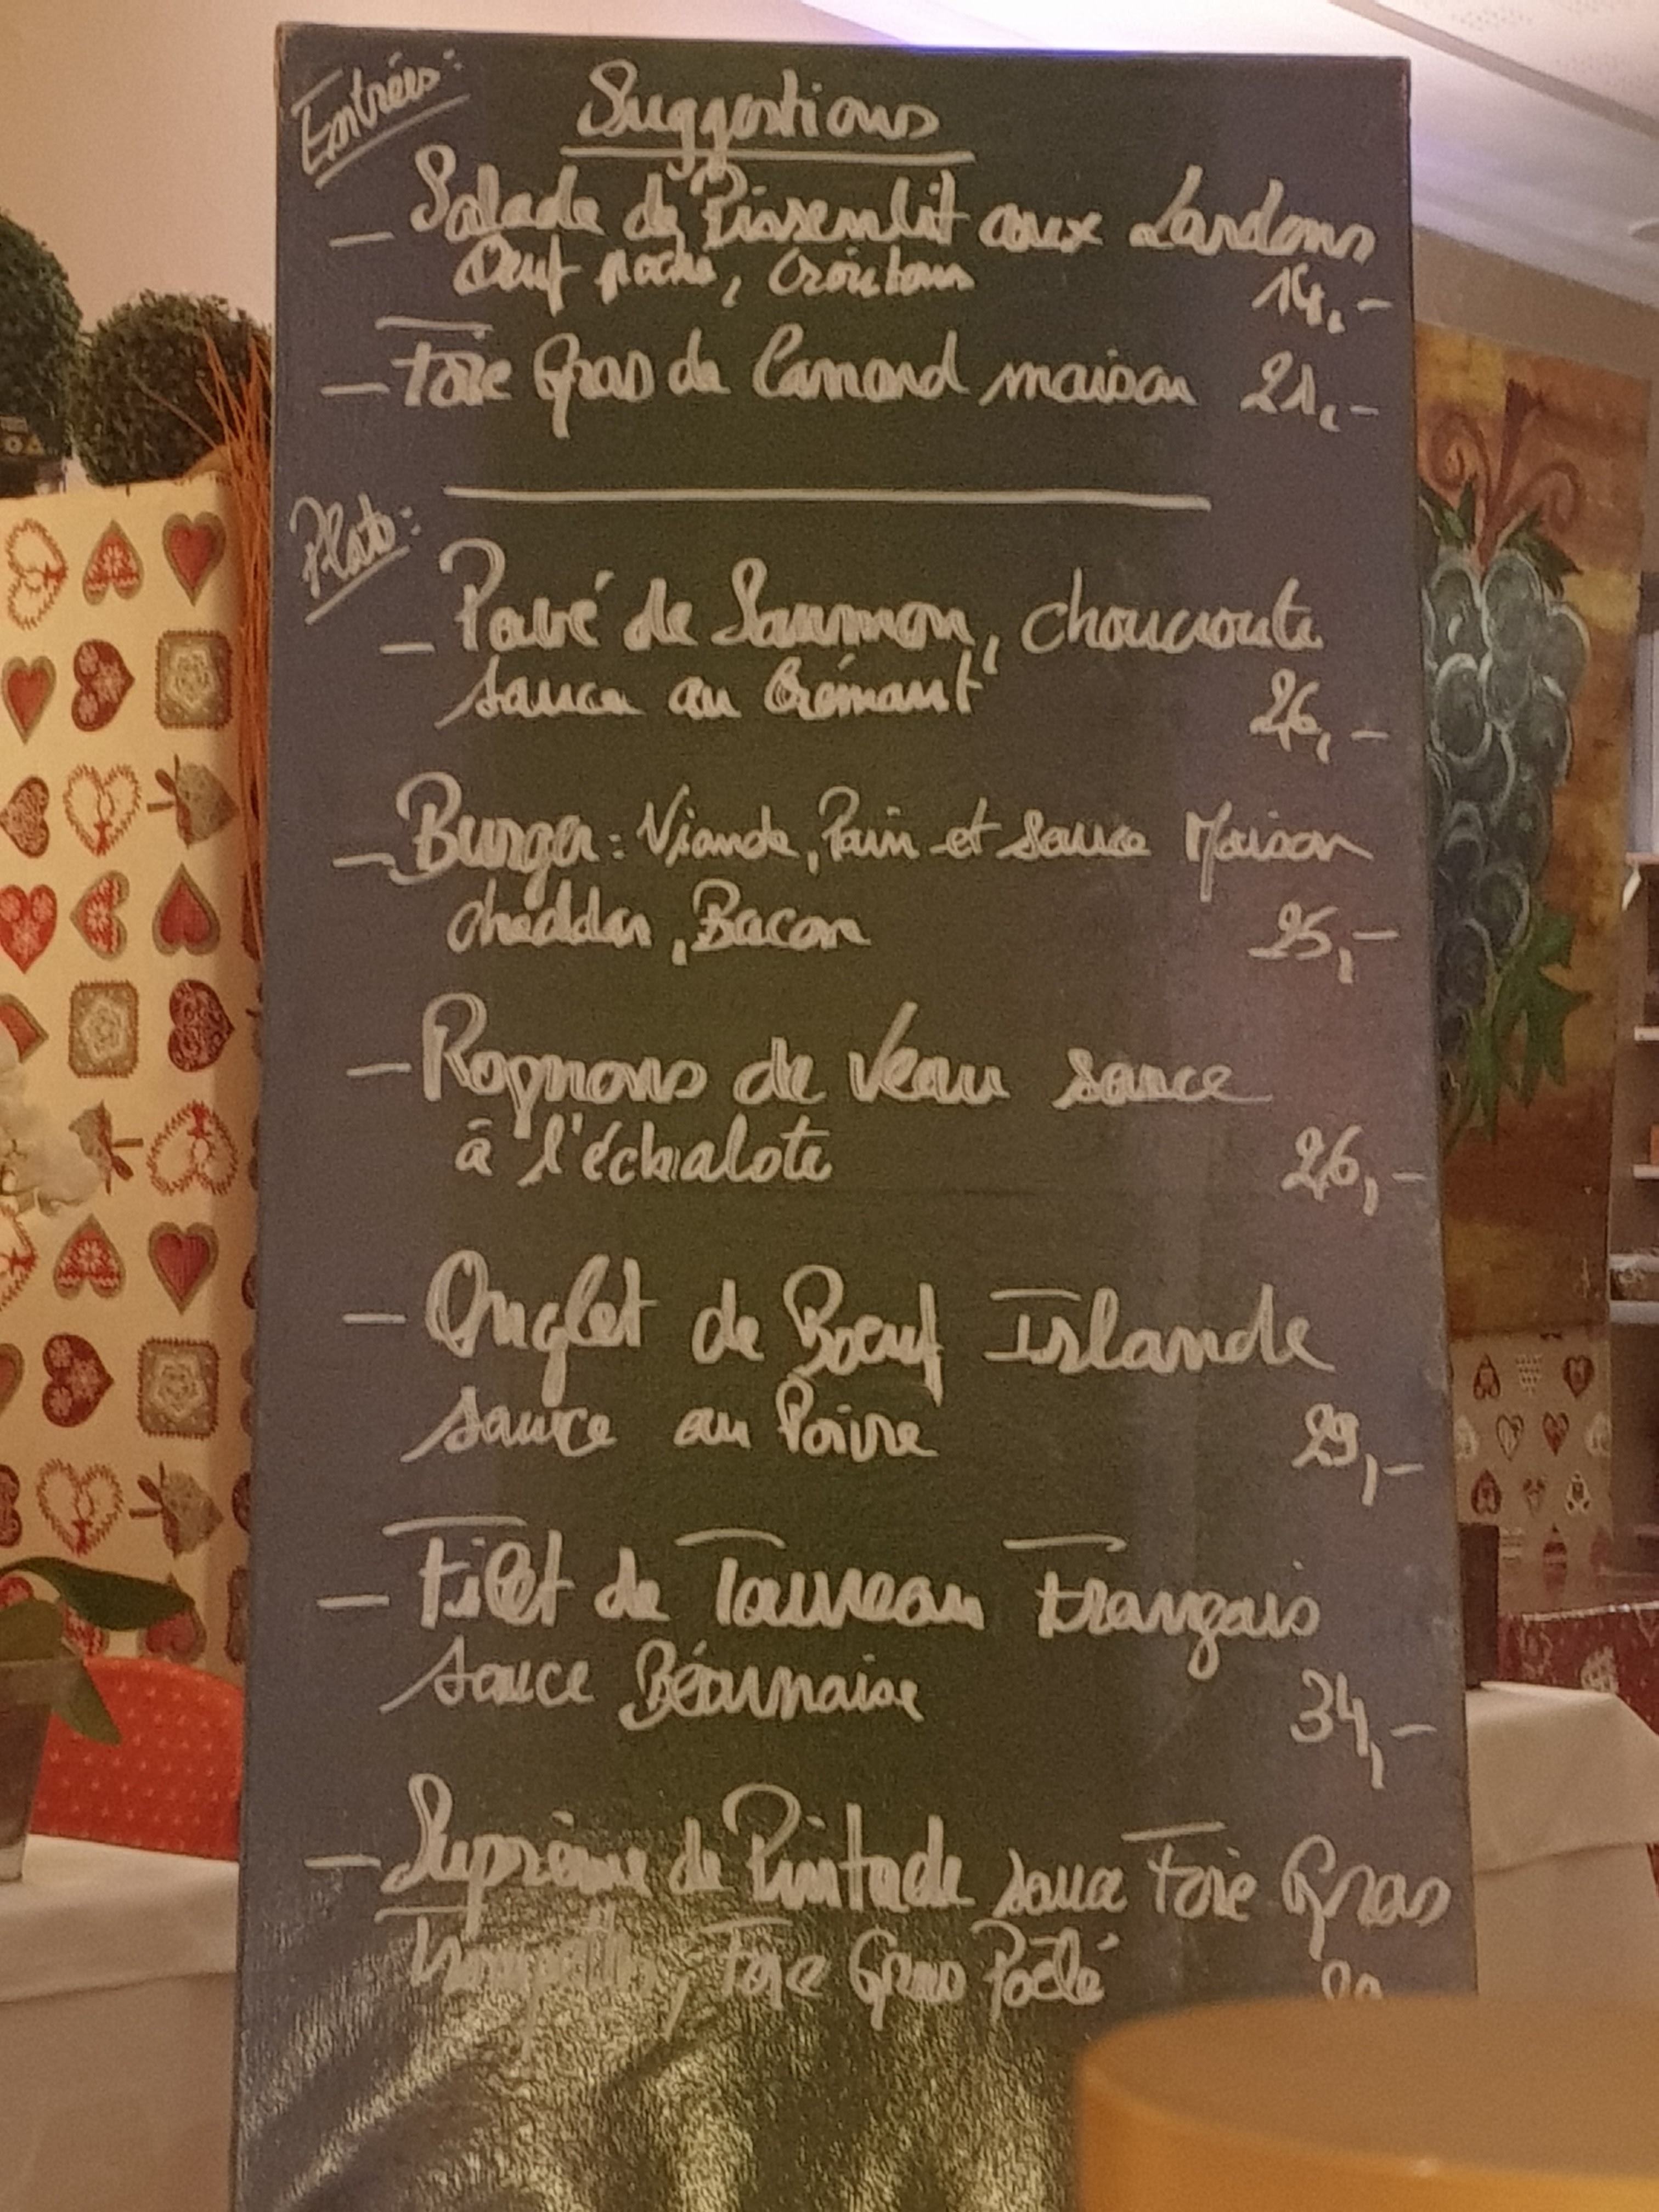 Entrées:
Suggestions
- Salade de Pissenlit aux Lardons
Oeuf poché, Croûtons 14,-
- Foie Gras de Canard maison 21,-
Plats:
- Pavé de Saumon, choucroute
sauce au Crémant 26,-
- Burger: Viande, Pain et sauce Maison
cheddar, Bacon 25,-
- Rognons de Veau sauce
à l'échalote 26,-
- Onglet de Boeuf Islande
sauce au Poivre 29,-
- Filet de Taureau Français
sauce Béarnaise 34,-
- Suprême de Pintade sauce Foie Gras
, Foie Gras Poêlé